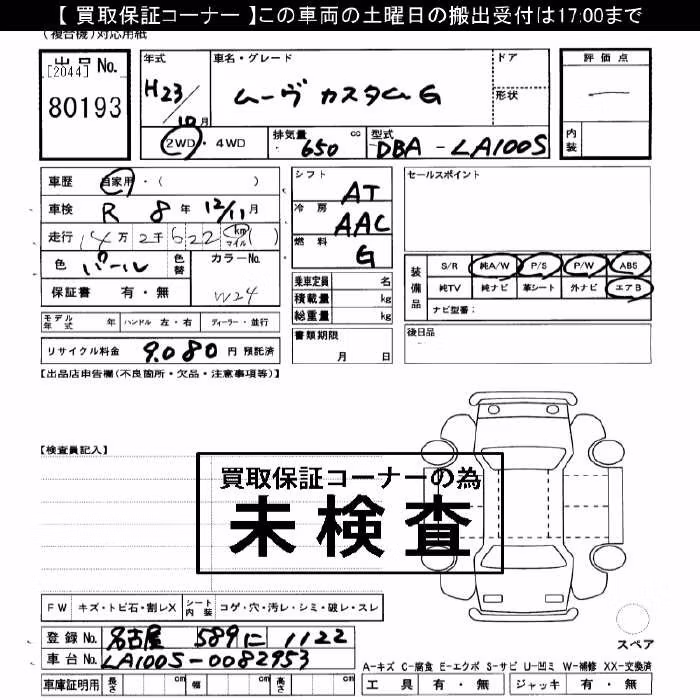 【 買取保証コーナー 】この車両の土曜日の搬出受付は17:00まで
(複合機)対応用紙
出品 No.
[2044]
80193
年式 H23/10月
車名・グレード ムーヴ カスタム G
ドア
形状
評価点
内装
2WD・4WD
排気量 650 cc
型式 DBA - LA100S
車歴 自家用・( )
車検 R 8 年 12/11 月
走行 14万 2千 622 km マイル ( )
色 パール 色替 カラーNo. W24
保証書 有・無
シフト AT
冷房 AAC
燃料 G
乗車定員 名
積載量 kg
総重量 kg
書類期限 月 日
セールスポイント
装備品
S/R 純A/W P/S P/W ABS
純TV 純ナビ 革シート 外ナビ エアB
ナビ型番:
後日品
モデル年式 年 ハンドル 左・右 ディーラー・並行
リサイクル料金 9.080 円 預託済
【出品店申告欄(不良箇所・欠品・注意事項等)】
【検査員記入】
買取保証コーナーの為
未検査
FW キズ・トビ石・割レX シート内装 コゲ・穴・汚レ・シミ・破レ・スレ
登録 No. 名古屋 589 に 1122
車台 No. LA100S-0082953
車庫証明用 長さ cm 幅 cm 高さ cm
スペア
A-キズ C-腐食 E-エクボ S-サビ U-凹ミ W-補修 XX-交換済
工具 有・無 ジャッキ 有・無